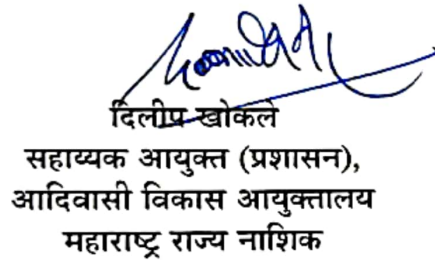 दिलीप खोकले
सहाय्यक आयुक्त (प्रशासन),
आदिवासी विकास आयुक्तालय
महाराष्ट्र राज्य नाशिक